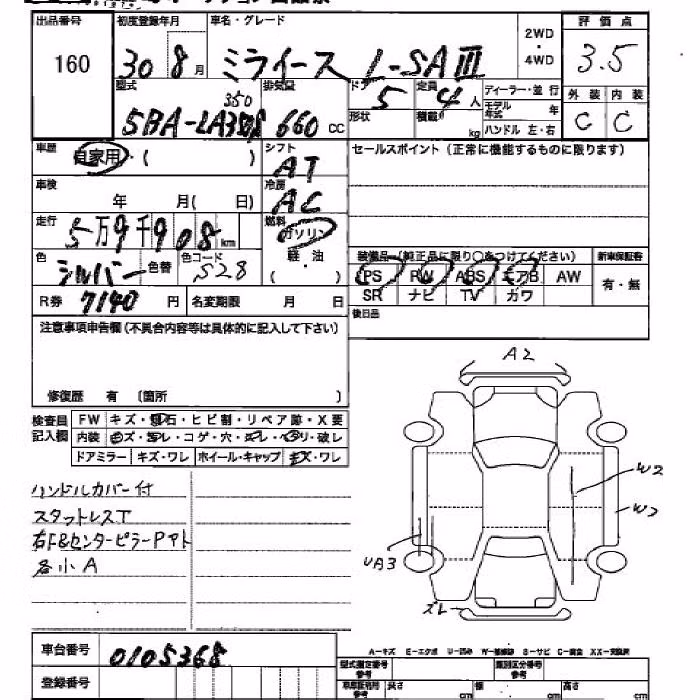 出品番号 初度登録年月 車名・グレード 評価点
160 30 8月 ミライース L-SAⅢ 2WD・4WD 3.5
型式 排気量 ドア 定員 ディーラー・並行 外装 内装
350
5BA-LA350S 660 CC 5 4人 モデル年式 年 C C
形状 積載 kg ハンドル 左・右
車歴 自家用・( ) シフト AT セールスポイント(正常に機能するものに限ります)
車検 年 月( 日) 冷房 AC
走行 5万9千908km 燃料 ガソリン
色 シルバー 色替 色コード S28 軽・油 ( ) 装備品(純正品に限り○をつけてください) 新車保証書
PS PW ABS エアB AW 有・無
R券 7140円 名変期限 月 日 SR ナビ TV カワ
後日品
注意事項申告欄(不具合内容等は具体的に記入して下さい)
修復歴 有 〔箇所 〕
検査員記入欄 FW キズ・飛石・ヒビ割・リペア跡・X要
内装 キズ・ヨゴレ・コゲ・穴・スレ・ヘタリ・破レ
ドアミラー キズ・ワレ ホイール・キャップ キズ・ワレ
ハンドルカバー付
スタットレスT
右F&センターピラーPアト
各小A
A2
W2
W2
UA3
ズレ
車台番号 0105368
登録番号
A-キズ E-エクボ U-凹み W-補修跡 S-サビ C-腐食 XX-交換済
型式指定番号 参考 類別区分番号 参考
車庫証明用 参考 長さ cm 幅 cm 高さ cm